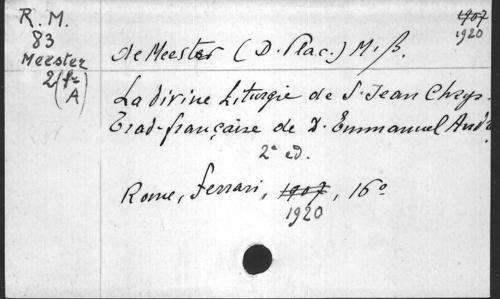 R. M.
83
Meester
2 (f=
A)
1907
1920
de Meester (D. Plac.) M. B.
La divine Liturgie de S. Jean Chrys.
Trad. française de D. Emmanuel André
2e ed.
Rome, Ferrari, 1907, 16º
1920